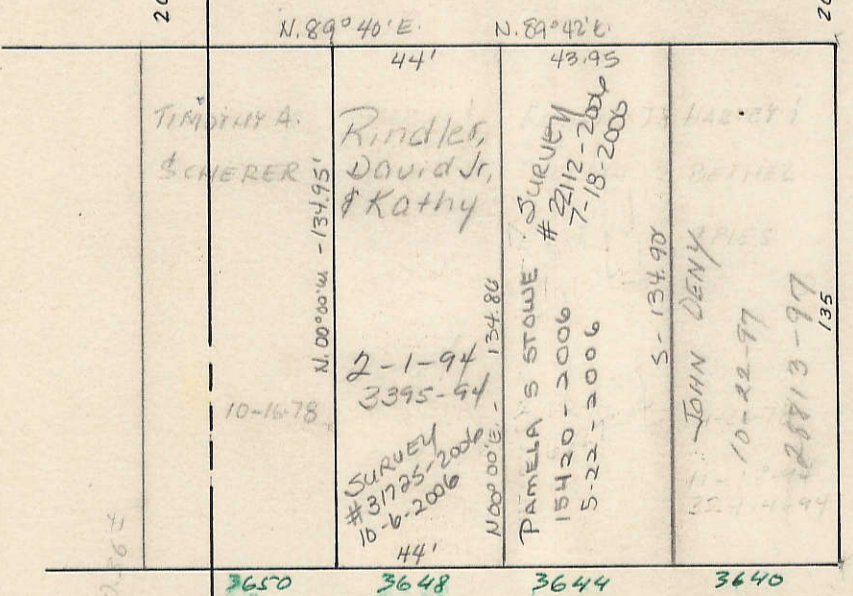 20
N. 89° 40' E.
N. 89° 42' E.
20
44'
43.95
TIMOTHY A.
SCHERER
N. 00°00'W - 134.95'
10-16-78
Rindler,
David Jr,
& Kathy
2-1-94
3395-94
SURVEY
#31725-2006
10-6-2006
44'
N 00°00'E. - 134.86
SURVEY
# 22112-2006
7-18-2006
PAMELA S STOWE
15420-2006
5-22-2006
S - 134.90
HARVEY
BETHEL
JOHN DENY
10-22-97
26813-97
135
3650
3648
3644
3640